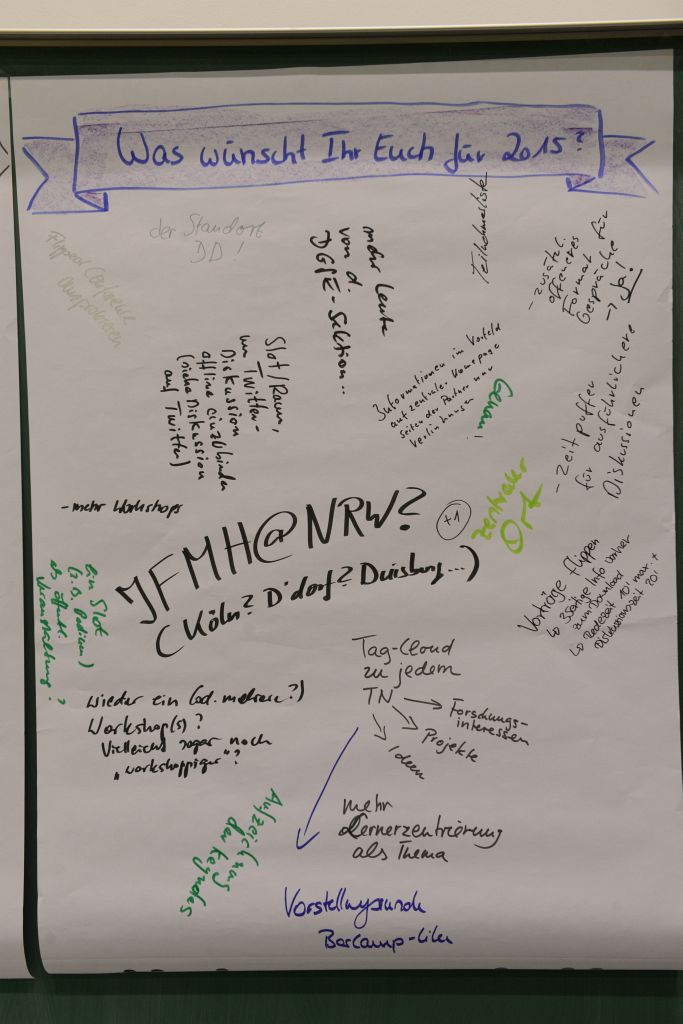 Was wünscht Ihr Euch für 2015?
der Standort
DD!
Flipped Conference
ausprobieren
mehr Leute
von d.
DGfE-Sektion..
Teilnehmerliste
- zusätzl.
offeneres
Format für
Gespräche
→ Ja!
Slot/Raum,
um Twitter-
Diskussion
offline einzubinden
(siehe Diskussion
auf Twitter)
Informationen im Vorfeld
auf zentraler Homepage
Seiten der Partner nur
verlinken
Genau!
- Zeitpuffer
für ausführlichere
Diskussionen
- mehr Workshops
JFMH@NRW?
(Köln? D'dorf? Duisburg...)
+1
zentraler
Ort
Vorträge flippen
↳ 3seitige Info vorher
zum Download
↳ Redezeit 10' max. +
Diskussionszeit 20'
ein Slot
(z.B. Podium)
als öffentl.
Veranstaltung?
wieder ein (od. mehrere?)
Workshop(s)?
Vielleicht sogar noch
„workshoppiger"?
Tag-Cloud
zu jedem
TN → Forschungs-
interessen
Projekte
Ideen
Aufzeichnung
der Keynotes
mehr
Lernerzentrierung
als Thema
Vorstellungsrunde
BarCamp-like